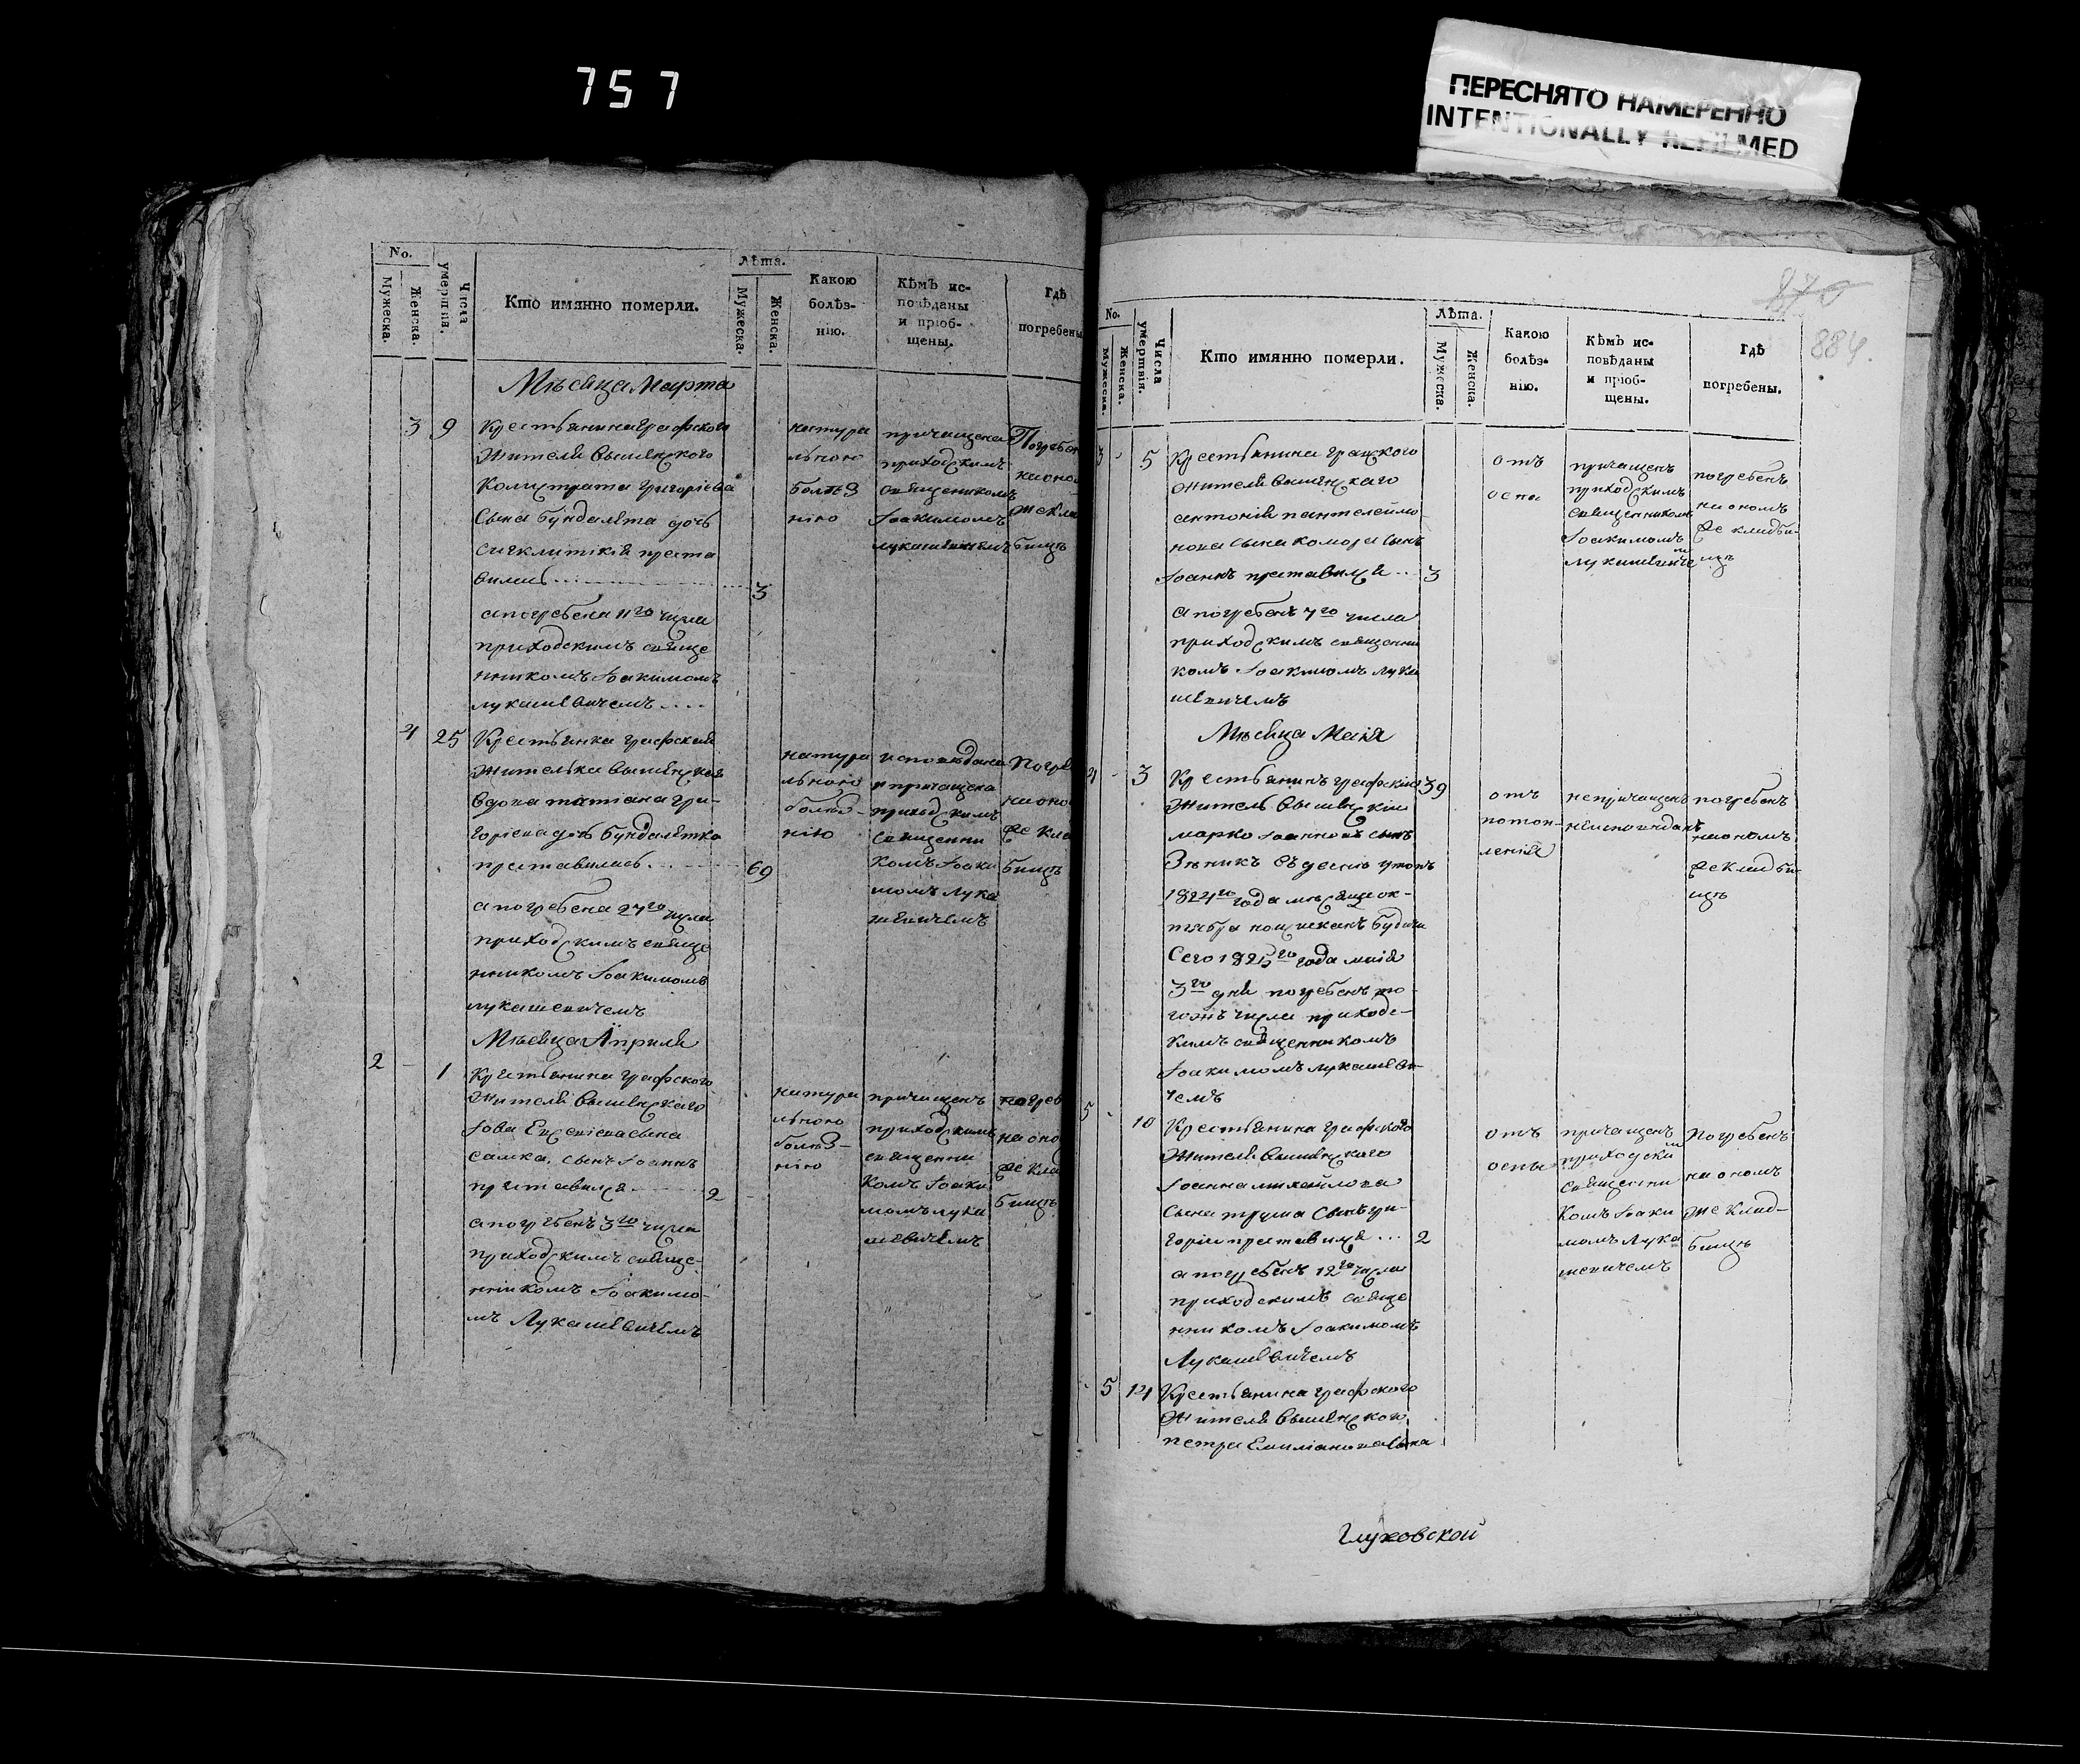 757
ПЕРЕСНЯТО НАМЕРЕННО
INTENTIONALLY REFILMED
No.
Мужеска.
Женска.
Числа умертвія.
Кто имянно померли.
Лѣта.
Мужеска.
Женска.
Какою болѣз-
нію.
Кѣмъ ис-
повѣданы
и пріоб-
щены.
Гдѣ
погребены
Мѣсяца Марта
3 9
Крестьянина графского
жителя вышенского
Калистрата григоріева
сына бундалета дочь
сигклитикія преста
вилась 3
а погребена 11го числа
приходскимъ свяще
нникомъ Іоакимомъ
лукашевичемъ
натура
льною
болѣз
нію
причащена
приходскимъ
священикомъ
Іоакимомъ
лукашевичемъ
Погребен
на оно
же кла
бищѣ
4 25
Крестьянка графская
жителька вышенская
вдова татіана гри-
горіева дочь бундалетка
преставилась 69
а погребена 27го числа
приходскимъ свяще
нникомъ Іоакимомъ
лукашевичемъ
натура
льною
болѣз-
нію
исповѣдана
и причащена
приходскимъ
священни
комъ Іоаки
момъ лука
шевичемъ
Погре
на оно
же кла
бищѣ
Мѣсяца Априля
2 - 1
Крестьянина графского
жителя вышенского
Іова сына
самка, сынъ Іоаннъ
преставился 2
а погребенъ 3го числа
приходскимъ свяще-
нникомъ Іоакимо-
мъ Лукашевичемъ
натура
льною
болѣз-
нію
причащенъ
приходскимъ
священни
комъ Іоаки
момъ лука
шевичемъ
погреб
на оно
же кла
бищѣ
870
884.
No.
Мужеска.
Женска.
Числа умертвія.
Кто имянно померли.
Лѣта.
Мужеска.
Женска.
Какою
болѣз-
нію.
Кѣмъ ис-
повѣданы
и пріоб-
щены.
Гдѣ
погребены.
3 - 5
Крестьянина графского
жителя вышенскаго
антонія пантелеймо-
нова сына комара сынъ
Іоаннъ преставился 3
а погребенъ 7го числа
приходскимъ священни
комъ Іоакимомъ лука
шевичемъ
отъ
оспи
причащенъ
приходскимъ
священникомъ
Іоакимомъ
лукашевиче м
погребенъ
на ономъ
же кладби-
щѣ
Мѣсяца Маія
4 - 3
Крестьянинъ графскій 39
житель вышенскій
марко Іоанновъ сынъ
въ десне утопъ
1824го года мѣсяца ок-
тября поисканъ будучи
сего 1825го года маія
3го дня погребенъ то-
гожъ числа приходс-
кимъ священникомъ
Іоакимомъ лукашеви-
чемъ
отъ
потоп-
ленія
непричащенъ
неисповиданъ
погребенъ
на ономъ
же кладби-
щѣ
5 - 10
Крестьянина графского
жителя вышенского
Іоанна михайлова
сына сынъ гри-
горій преставился 2
а погребенъ 12го числа
приходскимъ свяще
нникомъ Іоакимомъ
Лукашевичемъ
отъ
оспы
причащенъ
приходски м
священни
комъ Іоаки
момъ Лука
шевичемъ
Погребенъ
на ономъ
же клад-
бищѣ
- 5 14
Крестьянина графского
жителя вышенского
петра Емиліанова сына
Глуховской